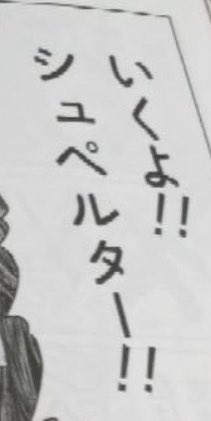 いくよ!!
シュペルター!!